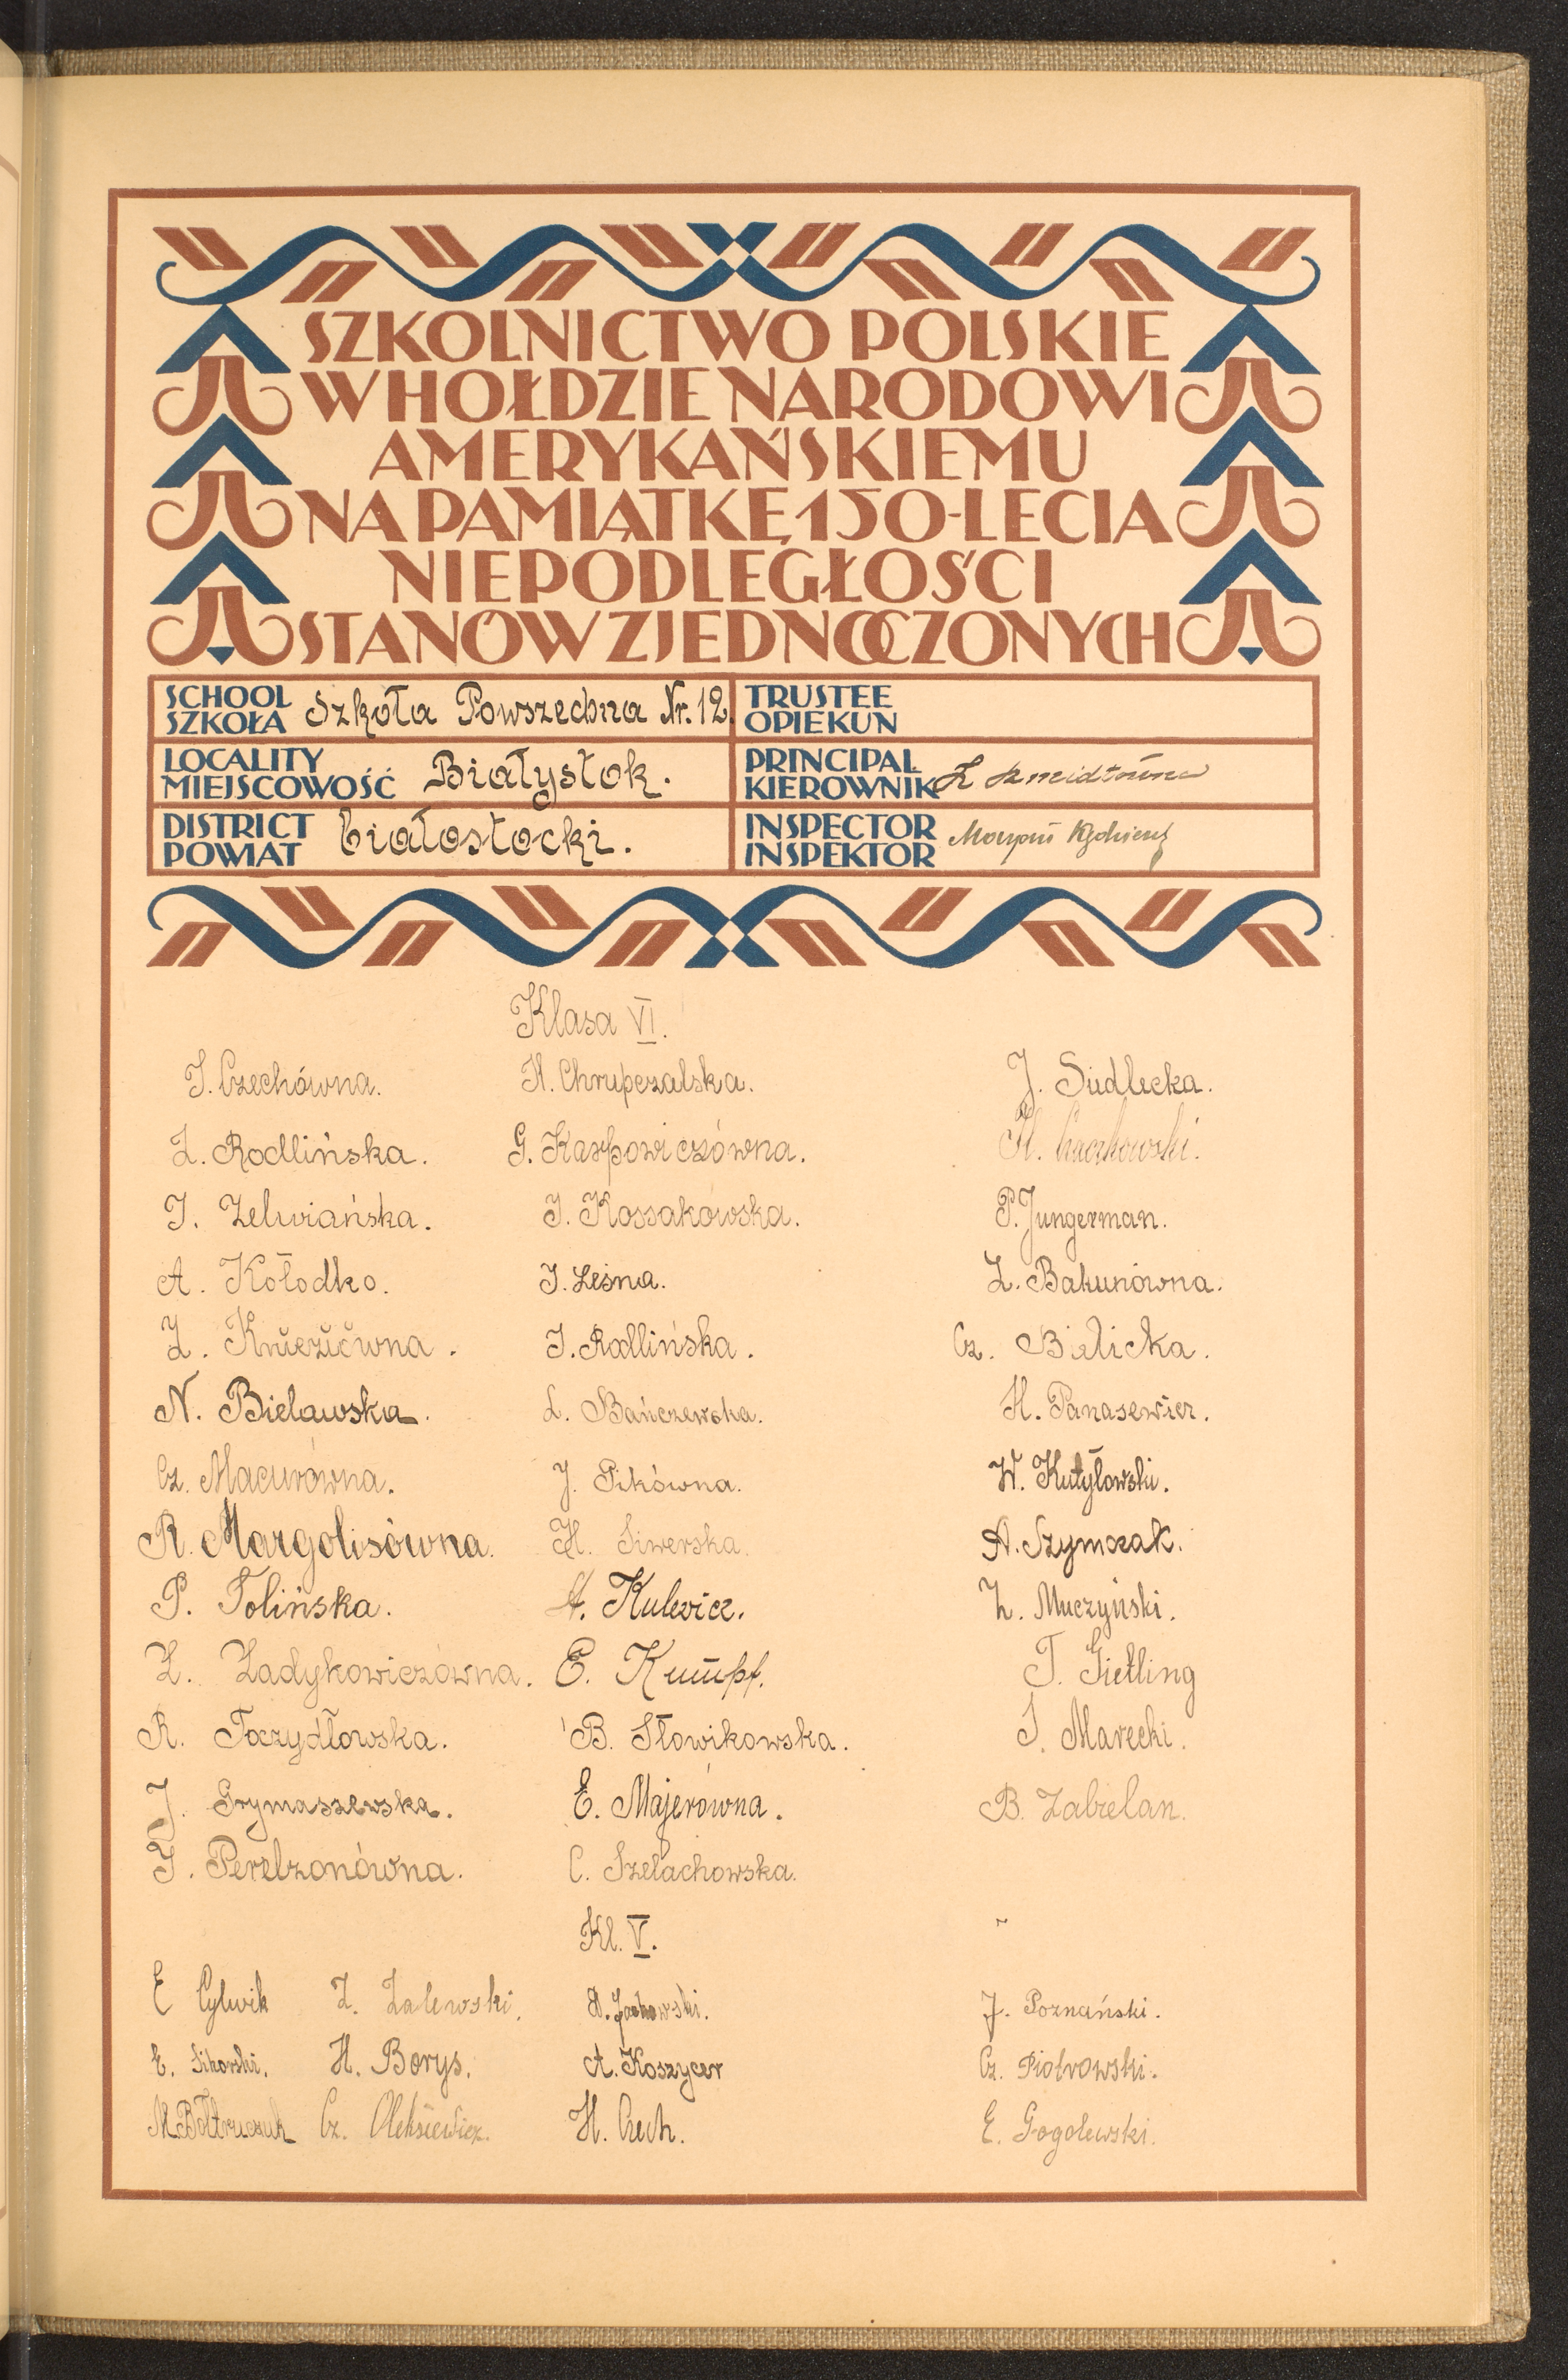 SZKOLNICTWO POLSKIE
W HOŁDZIE NARODOWI
AMERYKAŃSKIEMU
NA PAMIĄTKĘ 150-LECIA
NIEPODLEGŁOŚCI
STANÓW ZJEDNOCZONYCH
SCHOOL
SZKOŁA Szkoła Powszechna Nr. 12.
TRUSTEE
OPIEKUN
LOCALITY
MIEJSCOWOŚĆ Białystok.
PRINCIPAL
KIEROWNIK
DISTRICT
POWIAT białostocki.
INSPECTOR
INSPEKTOR
Klasa VI.
J. Czechówna. H. Chrupczalska. J. Siedlecka.
Z. Rodlińska. G. Karpowiczówna. H.
J. Zelwiańska. J. Kossakowska. P. Jungerman.
A. Kołodko. J. Leśna. Z. Bakunówna.
Z. J. Rodlińska. Cz. Bielicka.
N. Bielawska. L. Bańczewska. H. Panasewicz.
Cz. Macurówna. J. Pikówna. W. Kutyłowski.
R. Margolisówna. H. Siwerska. A. Szymczak.
P. Tolińska. A. Kulewicz. Z. Muczyński.
Z. Zadykowiczówna. E. Kumpf. T. Gietling
R. Toczydłowska. B. Słowikowska. J. Marecki.
J. Grymaszewska. E. Majerówna. B. Zabielan.
J. Perelzonówna. C. Szelachowska.
Kl. V.
E Cylwik Z. Zalewski. J. Poznański.
E. Sikorski. H. Borys. A. Koszycer Cz. Piotrowski.
M. Bołtruczuk Cz. Oleksiewicz. H. Czech. E. Gogolewski.